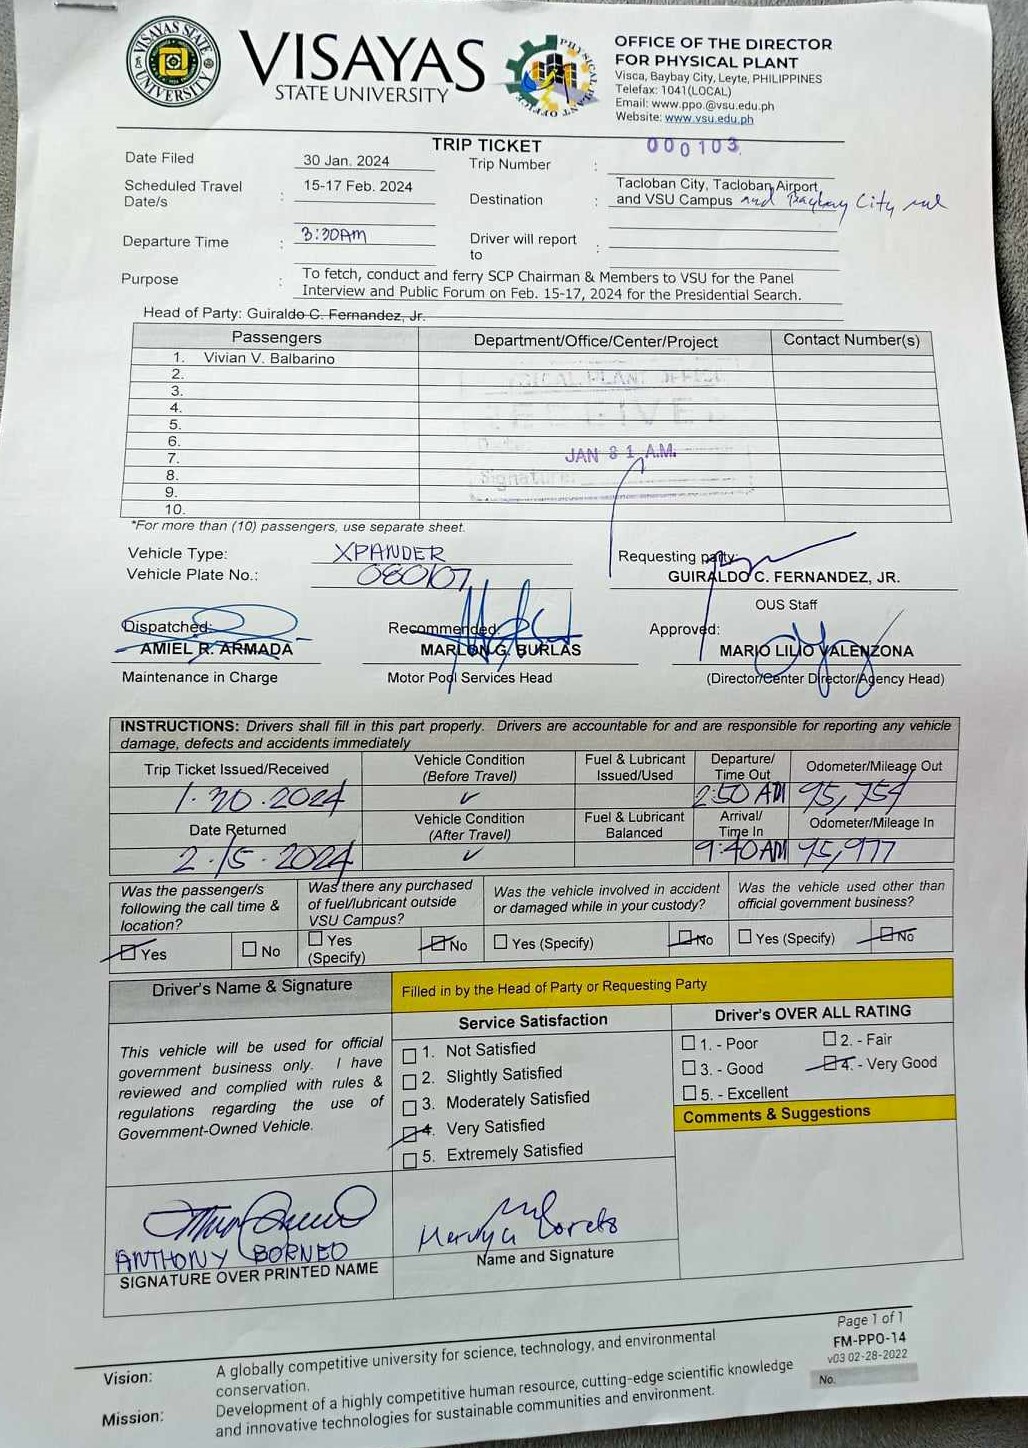 VISAYAS STATE UNIVERSITY
VISAYAS
STATE UNIVERSITY
PHYSICAL PLANT OFFICE
OFFICE OF THE DIRECTOR
FOR PHYSICAL PLANT
Visca, Baybay City, Leyte, PHILIPPINES
Telefax: 1041(LOCAL)
Email: www.ppo.@vsu.edu.ph
Website: www.vsu.edu.ph
TRIP TICKET
000103
Date Filed 30 Jan. 2024 Trip Number :
Scheduled Travel Date/s : 15-17 Feb. 2024 Destination : Tacloban City, Tacloban Airport
and VSU Campus and Baybay City
Departure Time : 3:30AM Driver will report to :
Purpose : To fetch, conduct and ferry SCP Chairman & Members to VSU for the Panel
Interview and Public Forum on Feb. 15-17, 2024 for the Presidential Search.
Head of Party: Guiraldo C. Fernandez, Jr.
Passengers Department/Office/Center/Project Contact Number(s)
1. Vivian V. Balbarino
2.
3.
4.
5.
6.
7.
8.
9.
10.
PHYSICAL PLANT OFFICE
RECEIVED
JAN 31 A.M.
Signature:
*For more than (10) passengers, use separate sheet.
Vehicle Type: XPANDER
Vehicle Plate No.: 080107
Requesting party:
GUIRALDO C. FERNANDEZ, JR.
OUS Staff
Dispatched: Recommended: Approved:
AMIEL R. ARMADA MARLON G. BURLAS MARIO LILIO VALENZONA
Maintenance in Charge Motor Pool Services Head (Director/Center Director/Agency Head)
INSTRUCTIONS: Drivers shall fill in this part properly. Drivers are accountable for and are responsible for reporting any vehicle
damage, defects and accidents immediately
Trip Ticket Issued/Received Vehicle Condition (Before Travel) Fuel & Lubricant Issued/Used Departure/ Time Out Odometer/Mileage Out
1.30.2024 ✓ 2:50 AM 95,754
Date Returned Vehicle Condition (After Travel) Fuel & Lubricant Balanced Arrival/ Time In Odometer/Mileage In
2.15.2024 ✓ 9:40AM 95,977
Was the passenger/s
following the call time &
location?
Yes No
Was there any purchased
of fuel/lubricant outside
VSU Campus?
Yes (Specify) No
Was the vehicle involved in accident
or damaged while in your custody?
Yes (Specify) No
Was the vehicle used other than
official government business?
Yes (Specify) No
Driver's Name & Signature
Filled in by the Head of Party or Requesting Party
This vehicle will be used for official
government business only. I have
reviewed and complied with rules &
regulations regarding the use of
Government-Owned Vehicle.
Service Satisfaction
1. Not Satisfied
2. Slightly Satisfied
3. Moderately Satisfied
4. Very Satisfied
5. Extremely Satisfied
Driver's OVER ALL RATING
1. - Poor 2. - Fair
3. - Good 4. - Very Good
5. - Excellent
Comments & Suggestions
ANTHONY BORNEO
SIGNATURE OVER PRINTED NAME
Name and Signature
Page 1 of 1
FM-PPO-14
v03 02-28-2022
No.
Vision: A globally competitive university for science, technology, and environmental
conservation.
Mission: Development of a highly competitive human resource, cutting-edge scientific knowledge
and innovative technologies for sustainable communities and environment.